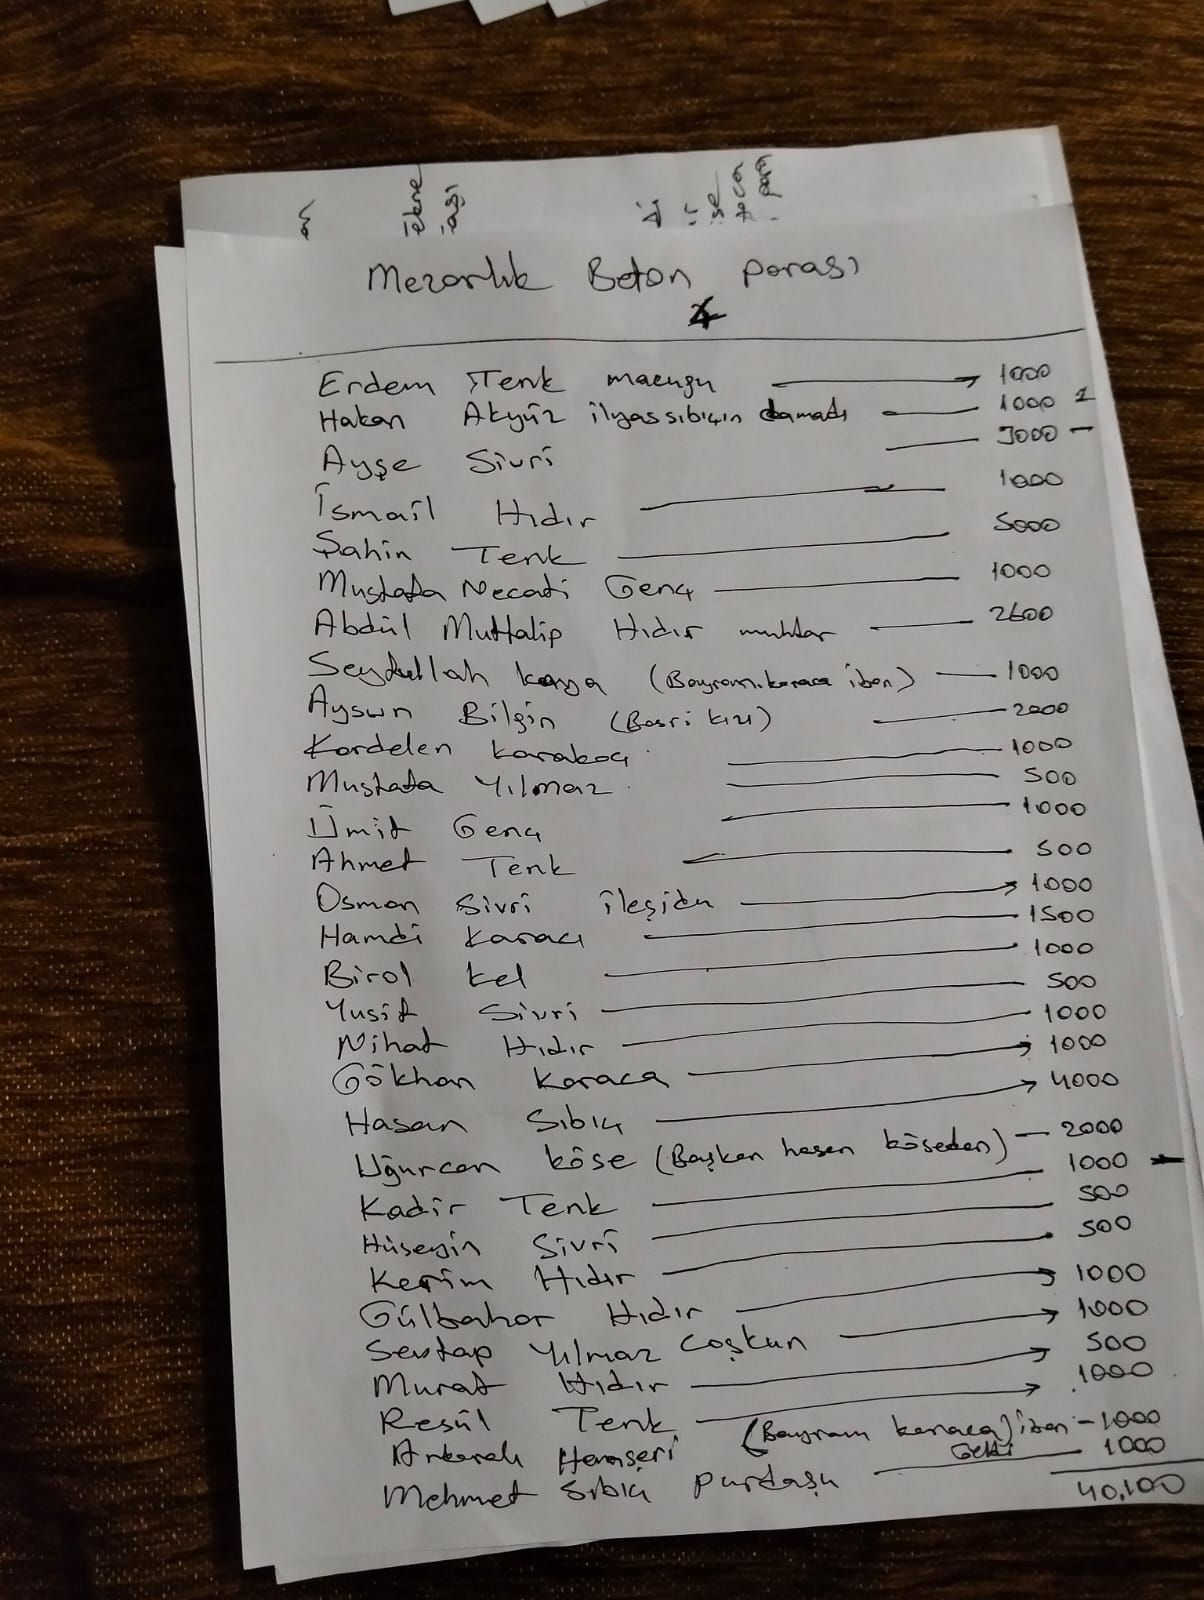 Mezarlık Beton parası
Erdem Tenk macuğu 1000
Hakan Akyüz ilyas sıbıçın damadı 1000
Ayşe Sivri 3000
İsmail Hıdır 1000
Şahin Tenk 5000
Mustafa Necati Genç 1000
Abdül Muttalip Hıdır muhtar 2600
Seydullah kaya (Bayram.karaca iban) 1000
Aysun Bilgin (Basri kızı) 2000
Kardelen karakoç 1000
Mustafa Yılmaz 500
Ümit Genç 1000
Ahmet Tenk 500
Osman Sivri 1000
Hamdi Karacı 1500
Birol kel 1000
Yusif Sivri 500
Nihat Hıdır 1000
Gökhan Karaca 1000
Hasan Sıbıç 4000
Uğurcan köse (Başkan hasan köseden) 2000
Kadir Tenk 1000
Hüseyin Sivri 500
Kerim Hıdır 500
Gülbahar Hıdır 1000
Sevtap Yılmaz Coşkun 1000
Murat Hıdır 500
Resül Tenk 1000
Ankaralı Hemşeri (Bayram karaca) iban 1000
Geldi
Mehmet Sıbıç 1000
40,100